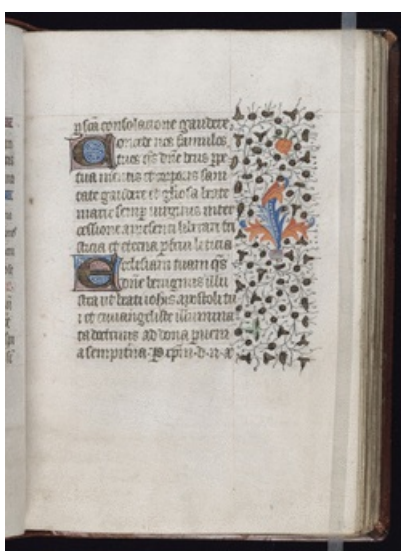 p̄ sctā consolacione gaudere.
Concede nos famulos
tuos q̄s dn̄e deus p̄pe
tua mentis et corporis sani
tate gaudere et gl̄iosa beate
marie semp̄ virginis inter
cessione a presenti liberari tri
sticia et eterna p̄frui leticia
Ecclesiam tuam q̄s
dom̄e benignus illu
stra vt beati ioh̄is apostoli tu
i et euuangeliste illumina
ta doctrinis ad dona pueni
a sempit̄na. P. xp̄m. d. n. a